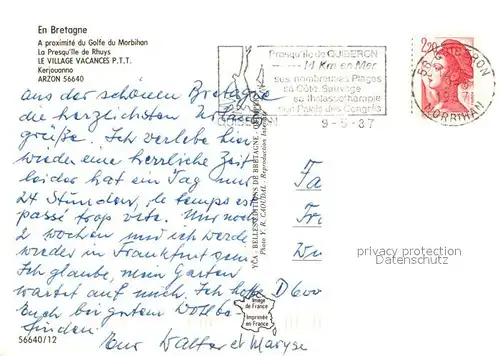 En Bretagne
A proximité du Golfe du Morbihan
La Presqu'île de Rhuys
LE VILLAGE VACANCES P.T.T.
Kerjouanno
ARZON 56640
aus der schönen Bretagne
die herzlichsten
grüße. Ich verlebe hier
wieder eine herrliche Zeit
leider hat ein Tag nur
24 Stunden, le temps est
passé trop vite. Nur noch
2 Wochen und ich werde
wieder in Frankfurt sein.
Ich glaube, mein Garten
wartet auf mich. Ich hoffe
Euch bei gutem Wohlbe-
finden.
Eure Walter et Maryse
56640/12
Presqu'île de QUIBERON
14 Km en Mer
ses nombreuses Plages
sa Côte Sauvage
sa thalassothérapie
son Palais des Congrès
QUIBERON
9-5-87
2,20
56 QUIBERON
MORBIHAN
BELLES EDITIONS DE BRETAGNE
Photo Y. R. CAOUDAL. Reproduction
D 600
Image
de France
Imprimée
en France
privacy protection
Datenschutz